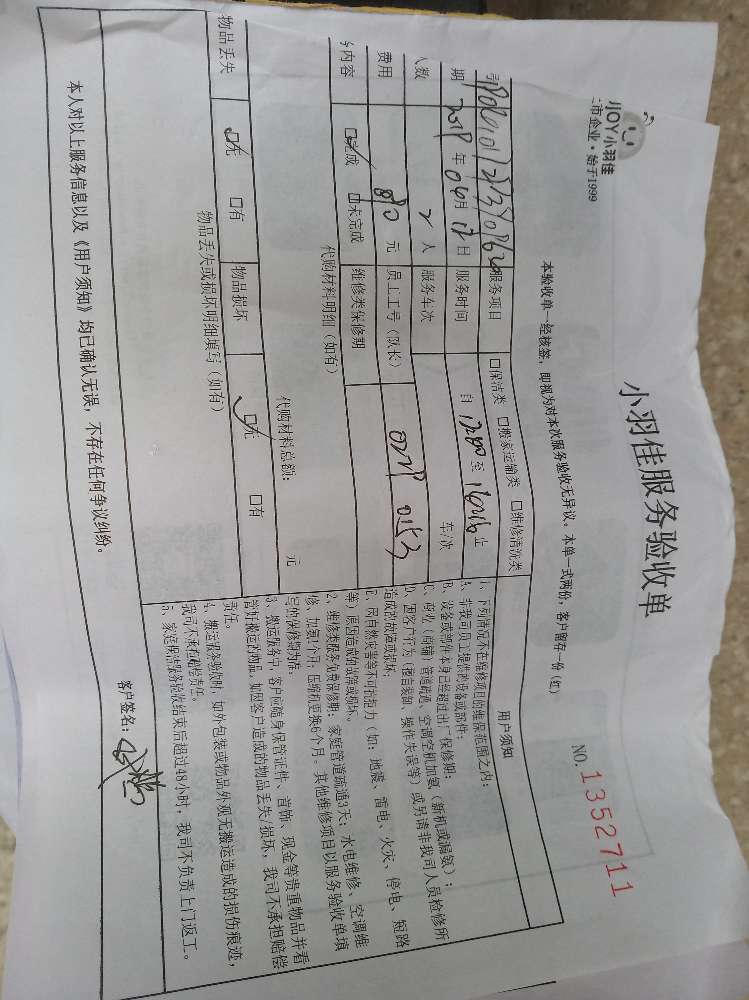 JOY小羽佳
市企业·始于1999
小羽佳服务验收单
NO.1352711
本验收单一经核签，即视为对本次服务验收无异议。本单一式两份，客户留存一份（红）
服务项目 □保洁类 □搬家运输类 □维修清洗类
期 年04月 日 服务时间 自 至 止
人数 2人 服务车次 车/次
费用 元 员工工号（队长） 0153
内容 □完成 □未完成 维修类保修期
代购材料明细（如有）
代购材料总额： 元
物品丢失 □无 □有 物品损坏 □无 □有
物品丢失或损坏明细填写（如有）
用户须知
1、下列情况不在维修项目的维保范围之内：
A、非我司员工提供的设备或部件；
B、设备或部件本身已经超过出厂保修期；
C、商业（商铺）管道疏通、空调空机加氟（新机或漏氟）；
D、因客户行为（擅自装卸、操作失误等）或另请非我司人员检修所
造成的故障或损坏；
E、因自然灾害等不可抗拒力（如：地震、雷电、火灾、停电、短路
等）原因造成的故障或损坏。
2、维修类服务免费保修期：家庭管道疏通3天；水电维修、空调维
修、加氟1个月；压缩机更换6个月。其他维修项目以服务验收单填
写的保修期为准。
3、搬运服务中，客户应随身保管证件、首饰、现金等贵重物品并看
管好搬运的物品，如因客户造成的物品丢失/损坏，我司不承担赔偿
责任。
4、搬运服务验收时，如外包装或物品外观无搬运造成的损伤痕迹，
我司不承担赔偿责任。
5、家庭保洁服务验收结束后超过48小时，我司不负责上门返工。
本人对以上服务信息以及《用户须知》均已确认无误，不存在任何争议纠纷。
客户签名：